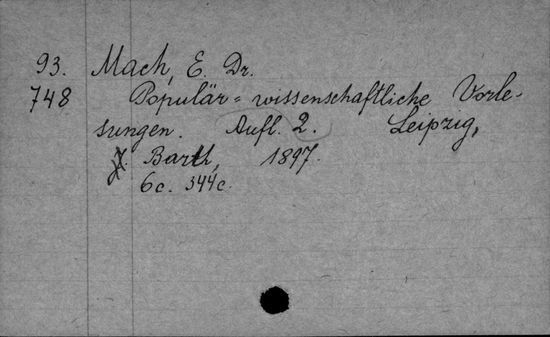 93. Mach, E. Dr.
748 Populär = wissenschaftliche Vorle-
sungen. Aufl. 2. Leipzig,
Barth, 1897.
6c. 344c.